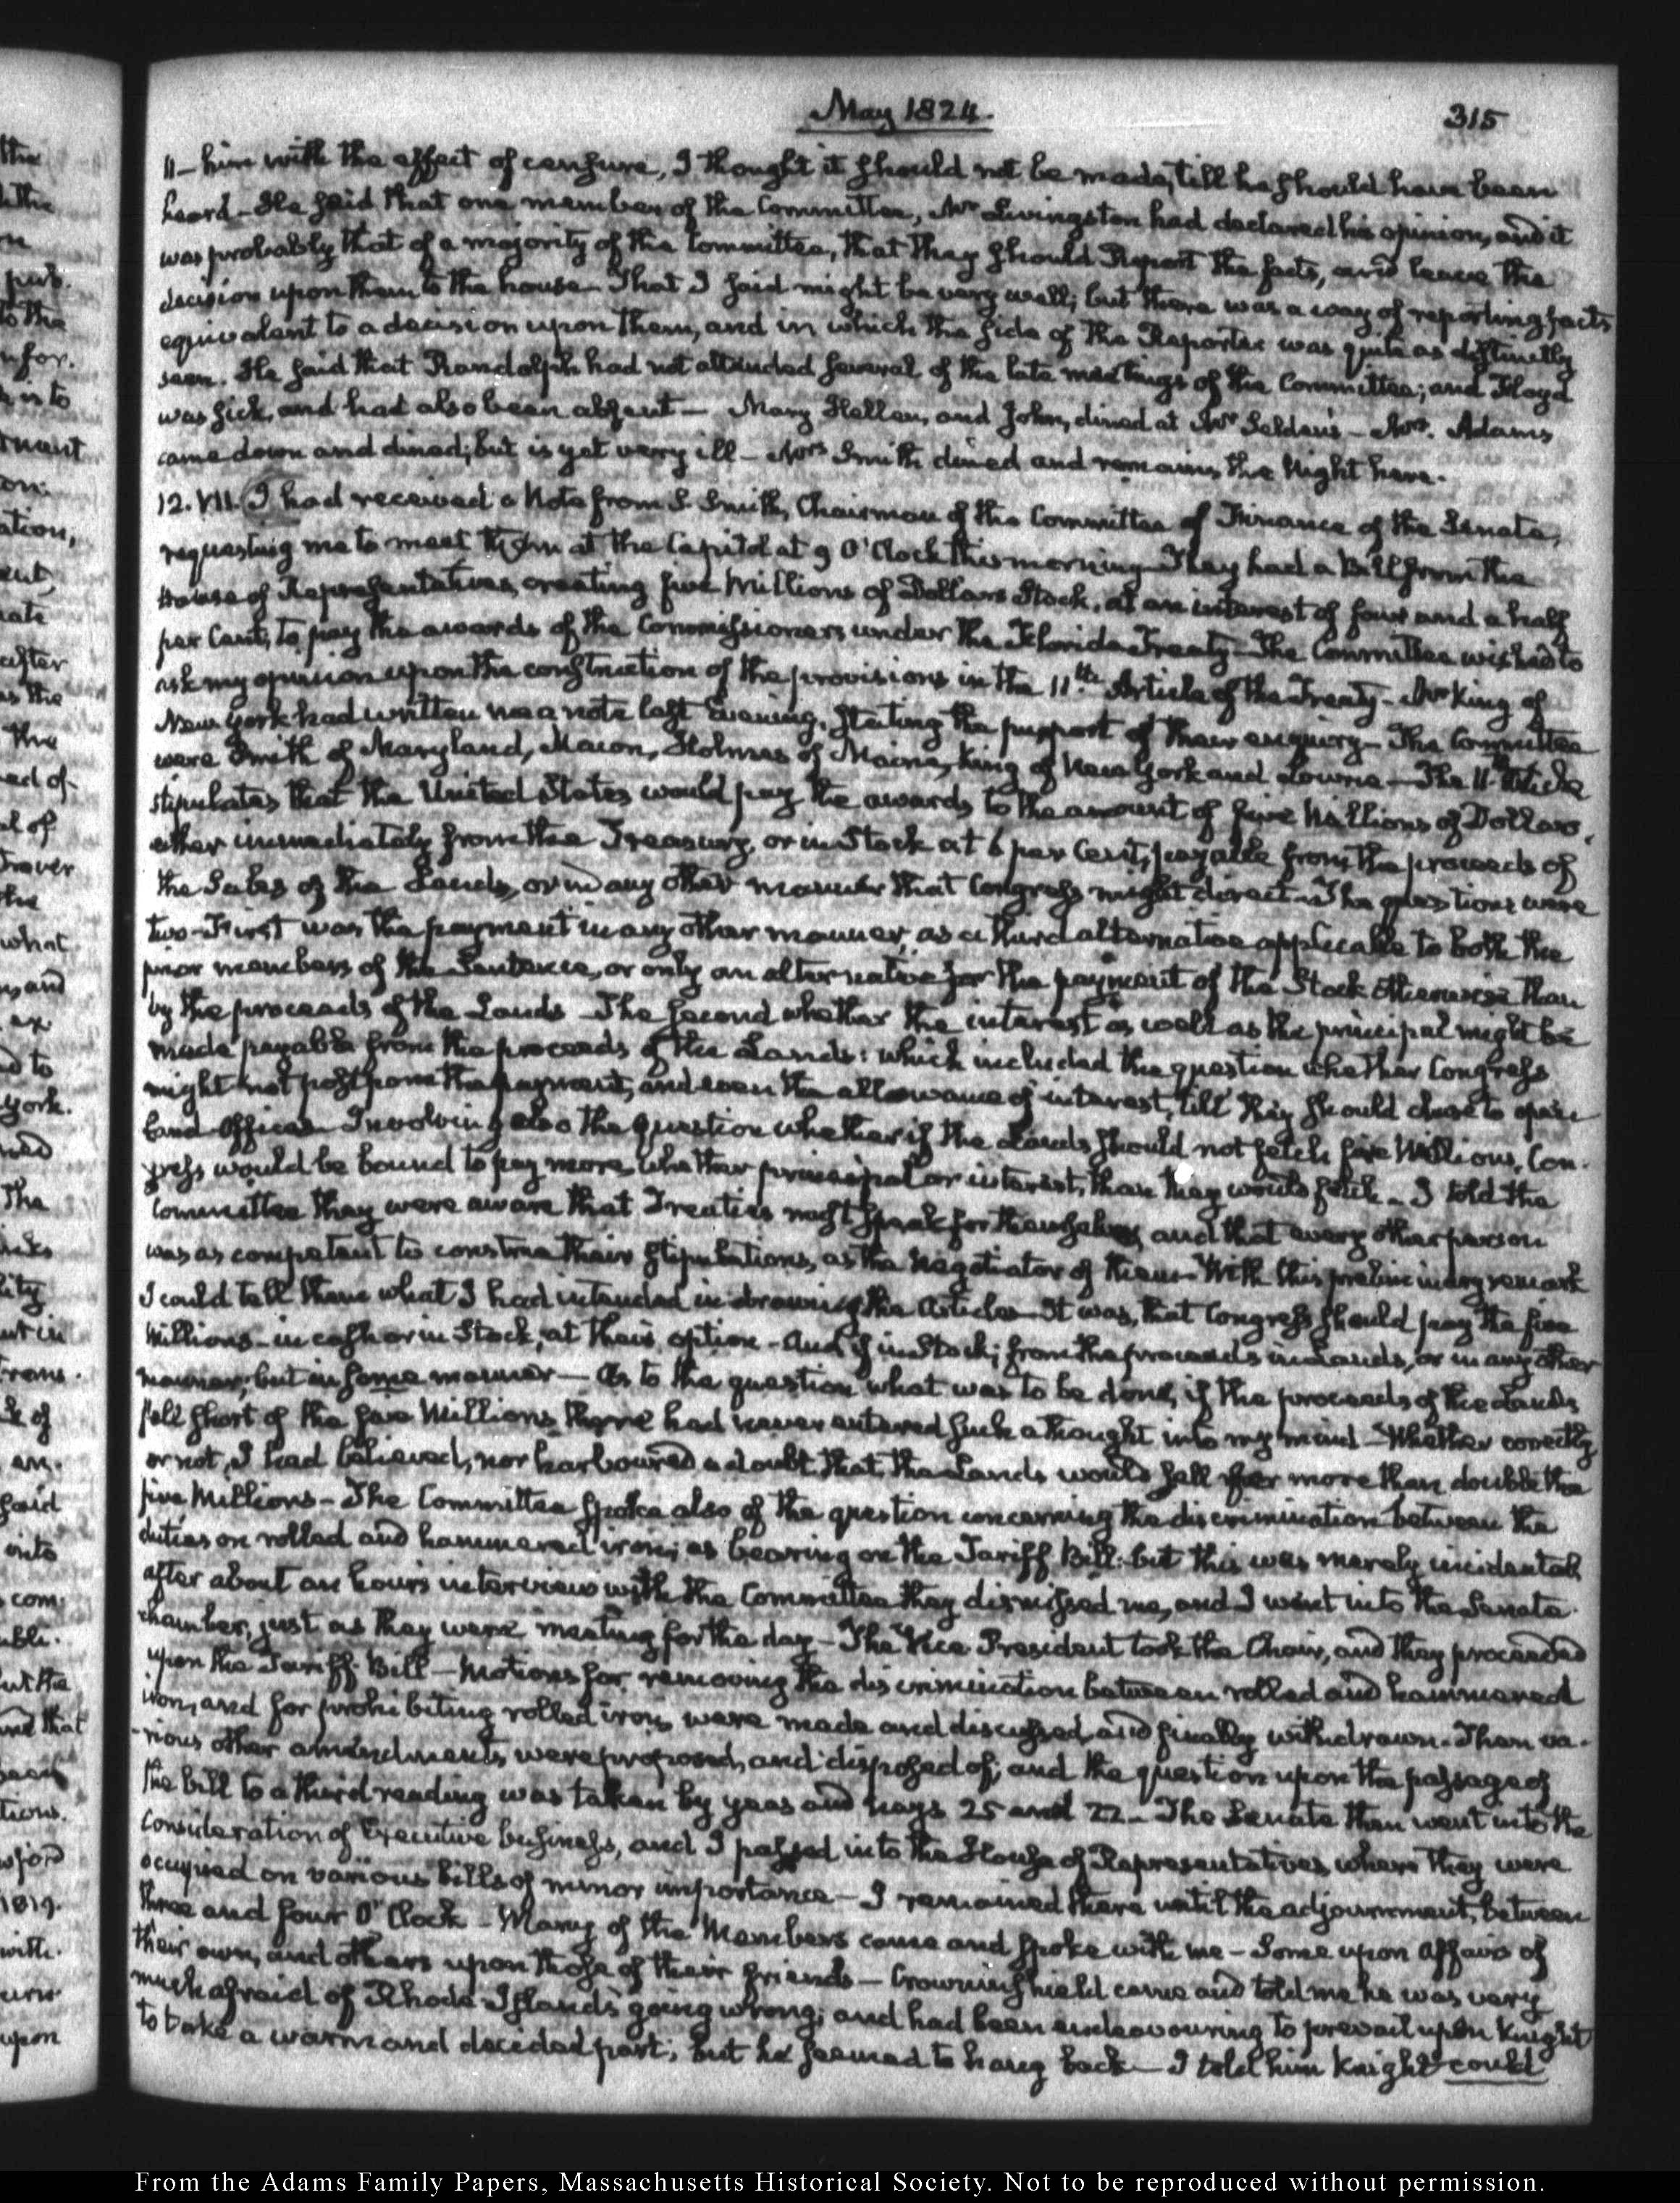 May 1824.
315
11 - him with the effect of censure, I thought it should not be made, till he should have been
heard - He said that one member of the Committee, Mr Livingston had declared his opinion, and it
was probably that of a majority of the Committee, that they should Report the facts, and leave the
decision upon them to the house - That I said might be very well; but there was a way of reporting facts
equivalent to a decision upon them, and in which the side of the Reporter was quite as distinctly
seen. He said that Randolph had not attended several of the late meetings of the Committee; and Floyd
was sick, and had also been absent - Mary Hellen, and John, dined at Mr Selden's - Mrs. Adams
came down and dined; but is yet very ill - Mrs Smith dined and remains the Night here.
12. VII. I had received a Note from S. Smith, Chairman of the Committee of Finance of the Senate,
requesting me to meet them at the Capitol at 9 O'Clock this morning - They had a Bill from the
House of Representatives, creating five Millions of Dollars Stock, at an interest of four and a half
per Cent, to pay the awards of the Commissioners under the Florida Treaty - The Committee wished to
ask my opinion upon the construction of the provisions in the 11th Article of the Treaty - Mr King of
New York had written me a note last Evening, stating the purport of their enquiry - The Committee
were Smith of Maryland, Macon, Holmes of Maine, King of New York and Lowrie - The 11th Article
stipulates that the United States would pay the awards, to the amount of five Millions of Dollars,
either immediately from the Treasury, or in Stock at 6 per Cent, payable from the proceeds of
the Sales of the Lands, or in any other manner that Congress might direct - The questions were
two - First was the payment in any other manner, as a third alternative applicable to both the
prior members of the Sentence, or only an alternative for the payment of the Stock otherwise than
by the proceeds of the Lands - The second whether the interest as well as the principal might be
made payable from the proceeds of the Lands: which included the question whether Congress
might not postpone the payment, and even the allowance of interest, till they should chuse to open
Land Offices - Involving also the question whether if the Lands should not fetch five Millions, Con-
gress would be bound to pay more, whether principal or interest, than they would fetch - I told the
Committee they were aware that Treaties must speak for themselves, and that every other person
was as competent to construe their stipulations, as the Negotiator of them - With this preliminary remark
I could tell them what I had intended in drawing the Article - It was, that Congress should pay the five
Millions - in cash or in Stock, at their option - And if in Stock; from the proceeds in Lands, or in any other
manner; but in some manner - As to the question what was to be done, if the proceeds of the Lands
fell short of the five Millions, there had never entered such a thought into my mind - Whether correctly
or not, I had believed, nor harboured a doubt, that the Lands would sell for more than double the
five Millions - The Committee spoke also of the question concerning the discrimination between the
duties on rolled and hammered iron; as bearing on the Tariff Bill: but this was merely incidental,
after about an hour's interview with the Committee they dismissed me, and I went into the Senate
chamber, just as they were meeting for the day - The Vice President took the Chair, and they proceeded
upon the Tariff Bill - Motions for removing the discrimination between rolled and hammered
iron, and for prohibiting rolled iron, were made and discussed, and finally withdrawn - Then va-
rious other amendments were proposed, and disposed of; and the question upon the passage of
the bill to a third reading was taken by yeas and nays 25 and 22 - The Senate then went into the
consideration of Executive business, and I passed into the House of Representatives, where they were
occupied on various bills of minor importance - I remained there until the adjournment, between
three and four O'Clock - Many of the Members came and spoke with me - Some upon affairs of
their own, and others upon those of their friends - Crowninshield came and told me he was very
much afraid of Rhode Island's going wrong; and had been endeavouring to prevail upon Knight
to take a warm and decided part; but he seemed to hang back - I told him Knight could
From the Adams Family Papers, Massachusetts Historical Society. Not to be reproduced without permission.